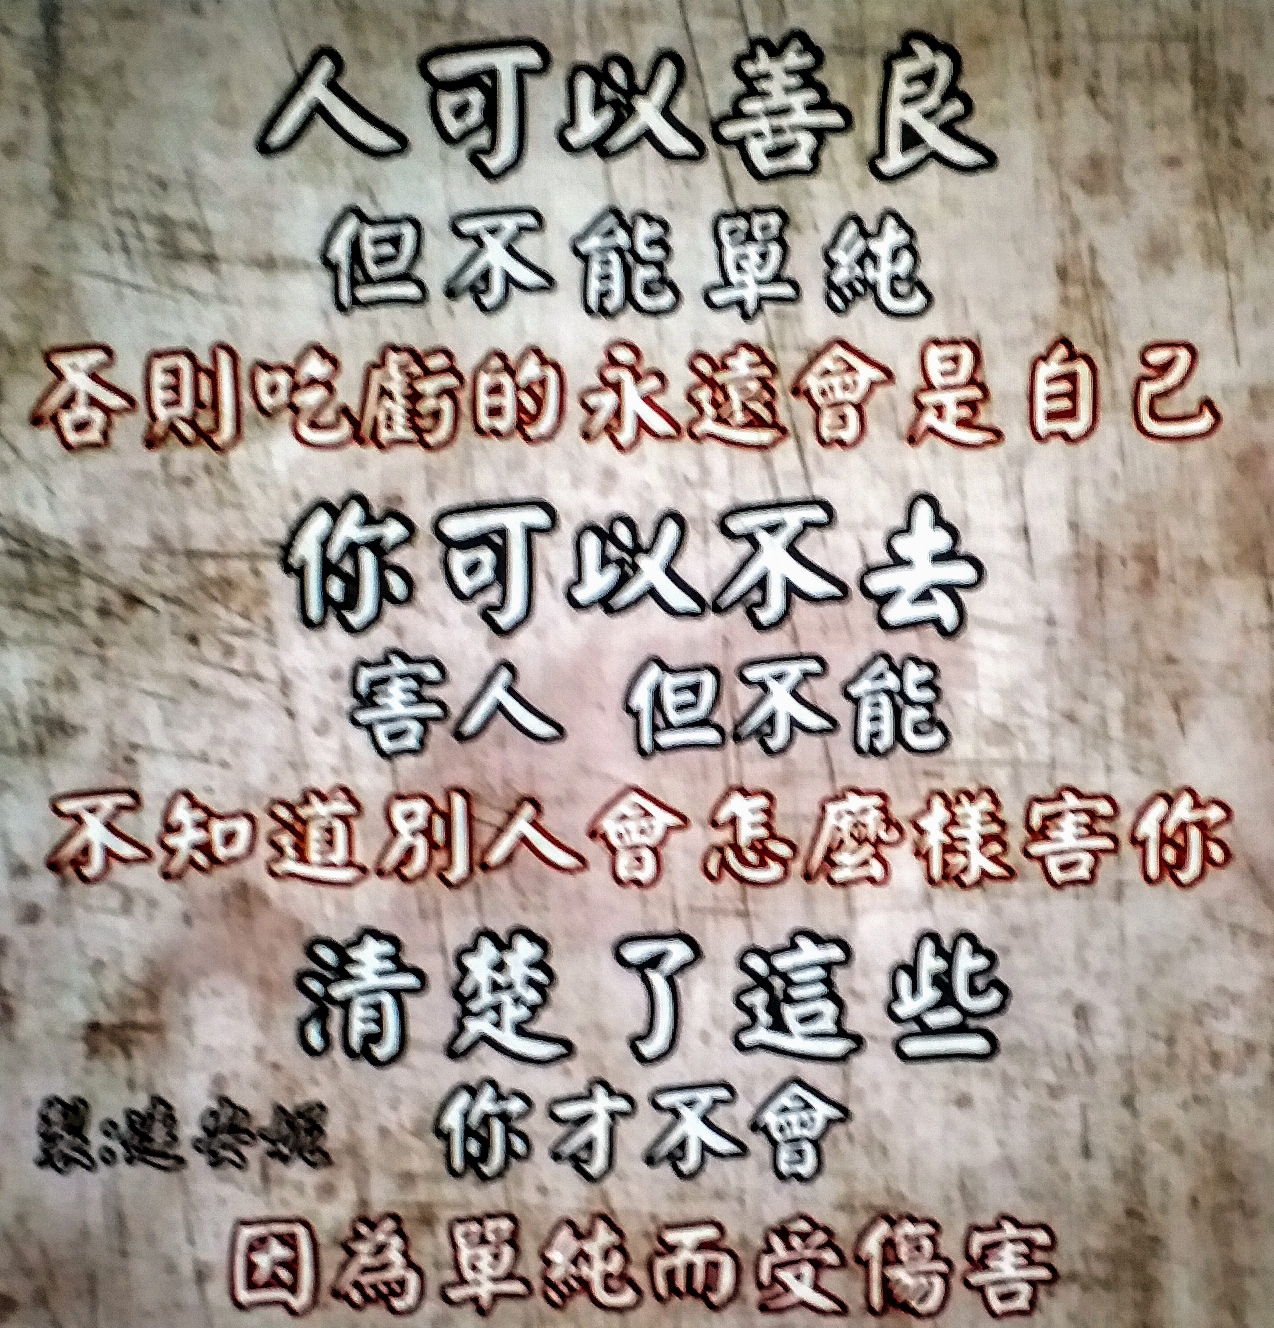 人可以善良
但不能單純
否則吃虧的永遠會是自己
你可以不去
害人 但不能
不知道別人會怎麼樣害你
清楚了這些
你才不會
因為單純而受傷害